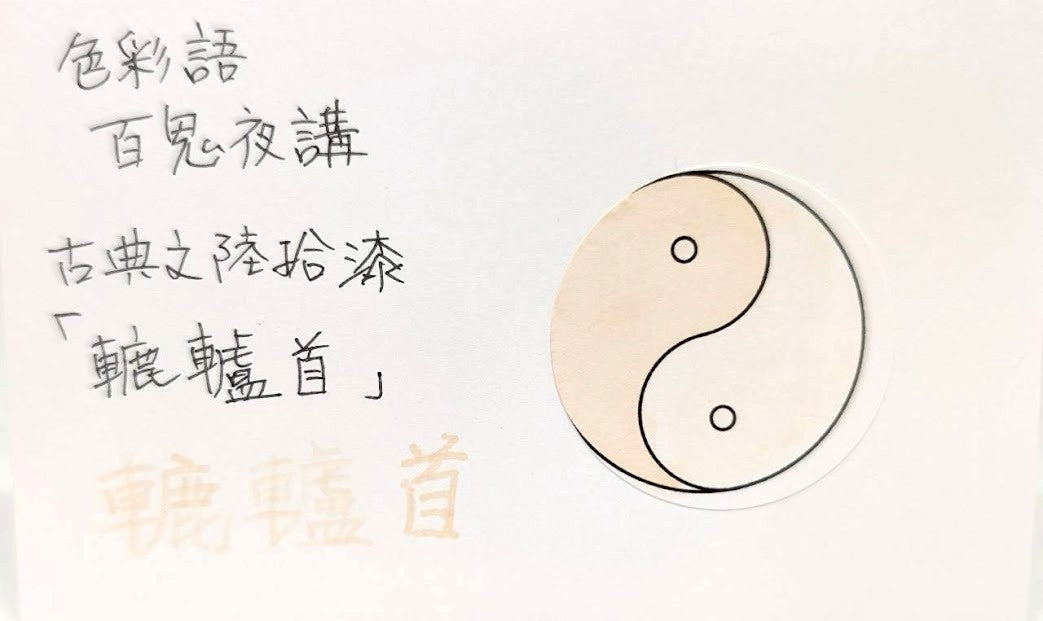 色彩語
百鬼夜講
古典文陸拾漆
「轆轤首」
轆轤首